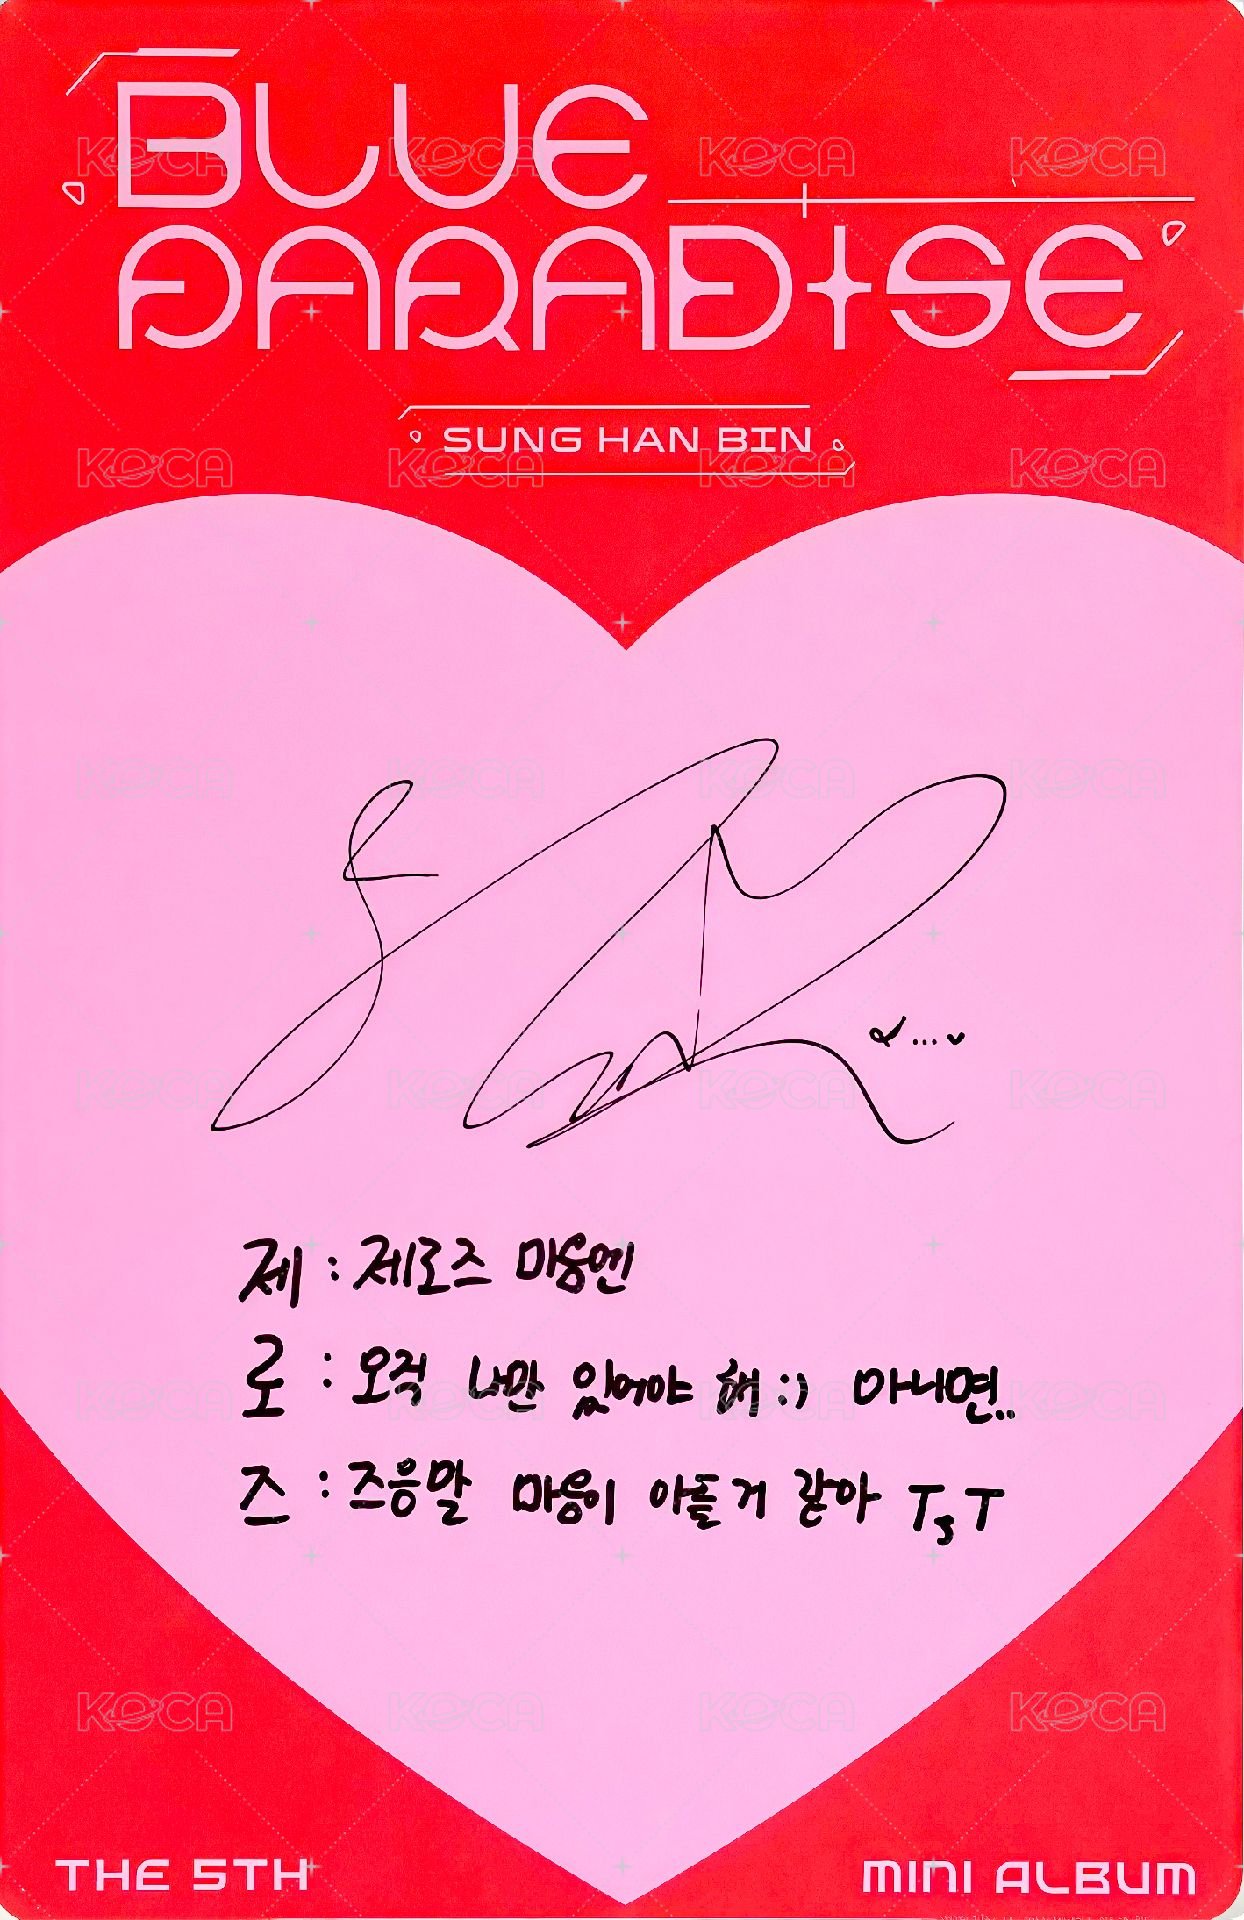 BLUE
PARADISE
SUNG HAN BIN
제 : 제로즈 마음엔
로 : 오직 나만 있어야 해 :) 아니면..
즈 : 즈응말 마음이 아플 거 같아 T_T
THE 5TH
MINI ALBUM
KOCA